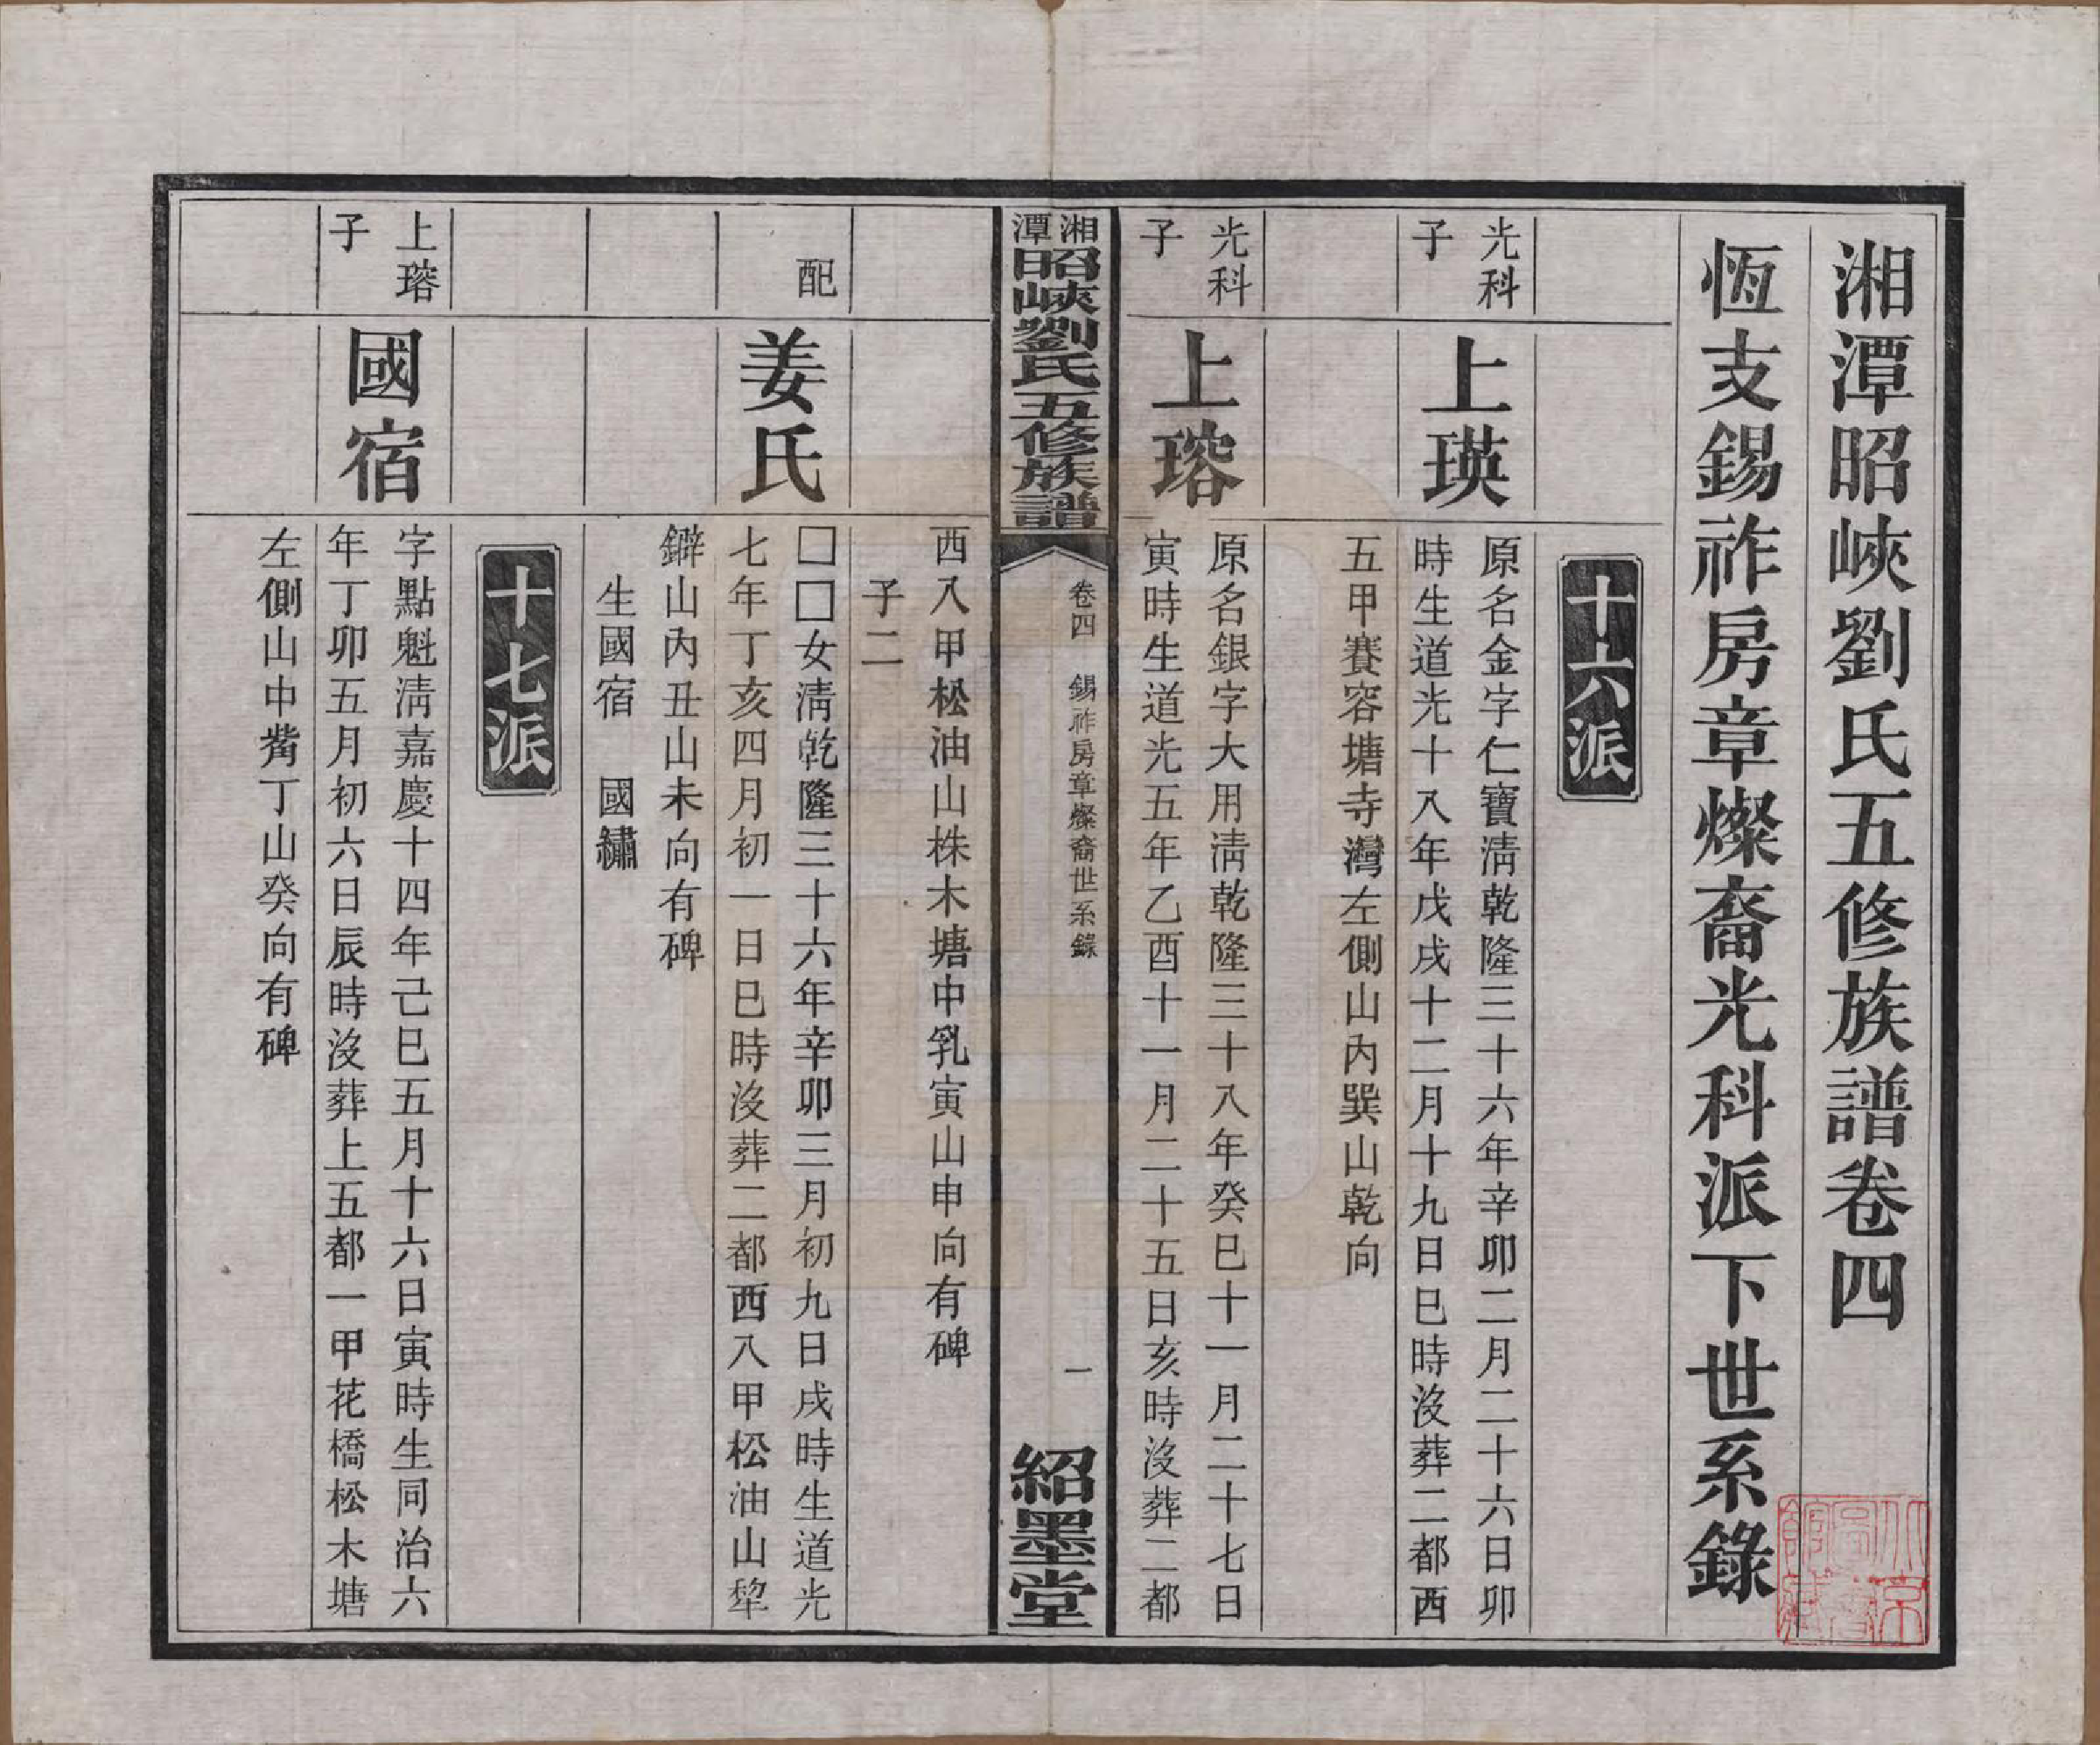 湘潭昭峽劉氏五修族譜卷四
恆支錫祚房章燦裔光科派下世系錄
十六派
光科
子
上瑛
原名金字仁寶淸乾隆三十六年辛卯二月二十六日卯
時生道光十八年戊戌十二月十九日巳時沒葬二都西
五甲賽容塘寺灣左側山內巽山乾向
光科
子
上瑢
原名銀字大用淸乾隆三十八年癸巳十一月二十七日
寅時生道光五年乙酉十一月二十五日亥時沒葬二都
湘潭昭峽劉氏五修族譜
卷四 錫祚房章燦裔世系錄
一
紹墨堂
西八甲松油山株木塘中乳寅山申向有碑
子二
配
姜氏
□□女淸乾隆三十六年辛卯三月初九日戌時生道光
七年丁亥四月初一日巳時沒葬二都西八甲松油山犂
鐴山內丑山未向有碑
生國宿 國繡
十七派
上瑢
子
國宿
字點魁淸嘉慶十四年己巳五月十六日寅時生同治六
年丁卯五月初六日辰時沒葬上五都一甲花橋松木塘
左側山中嘴丁山癸向有碑